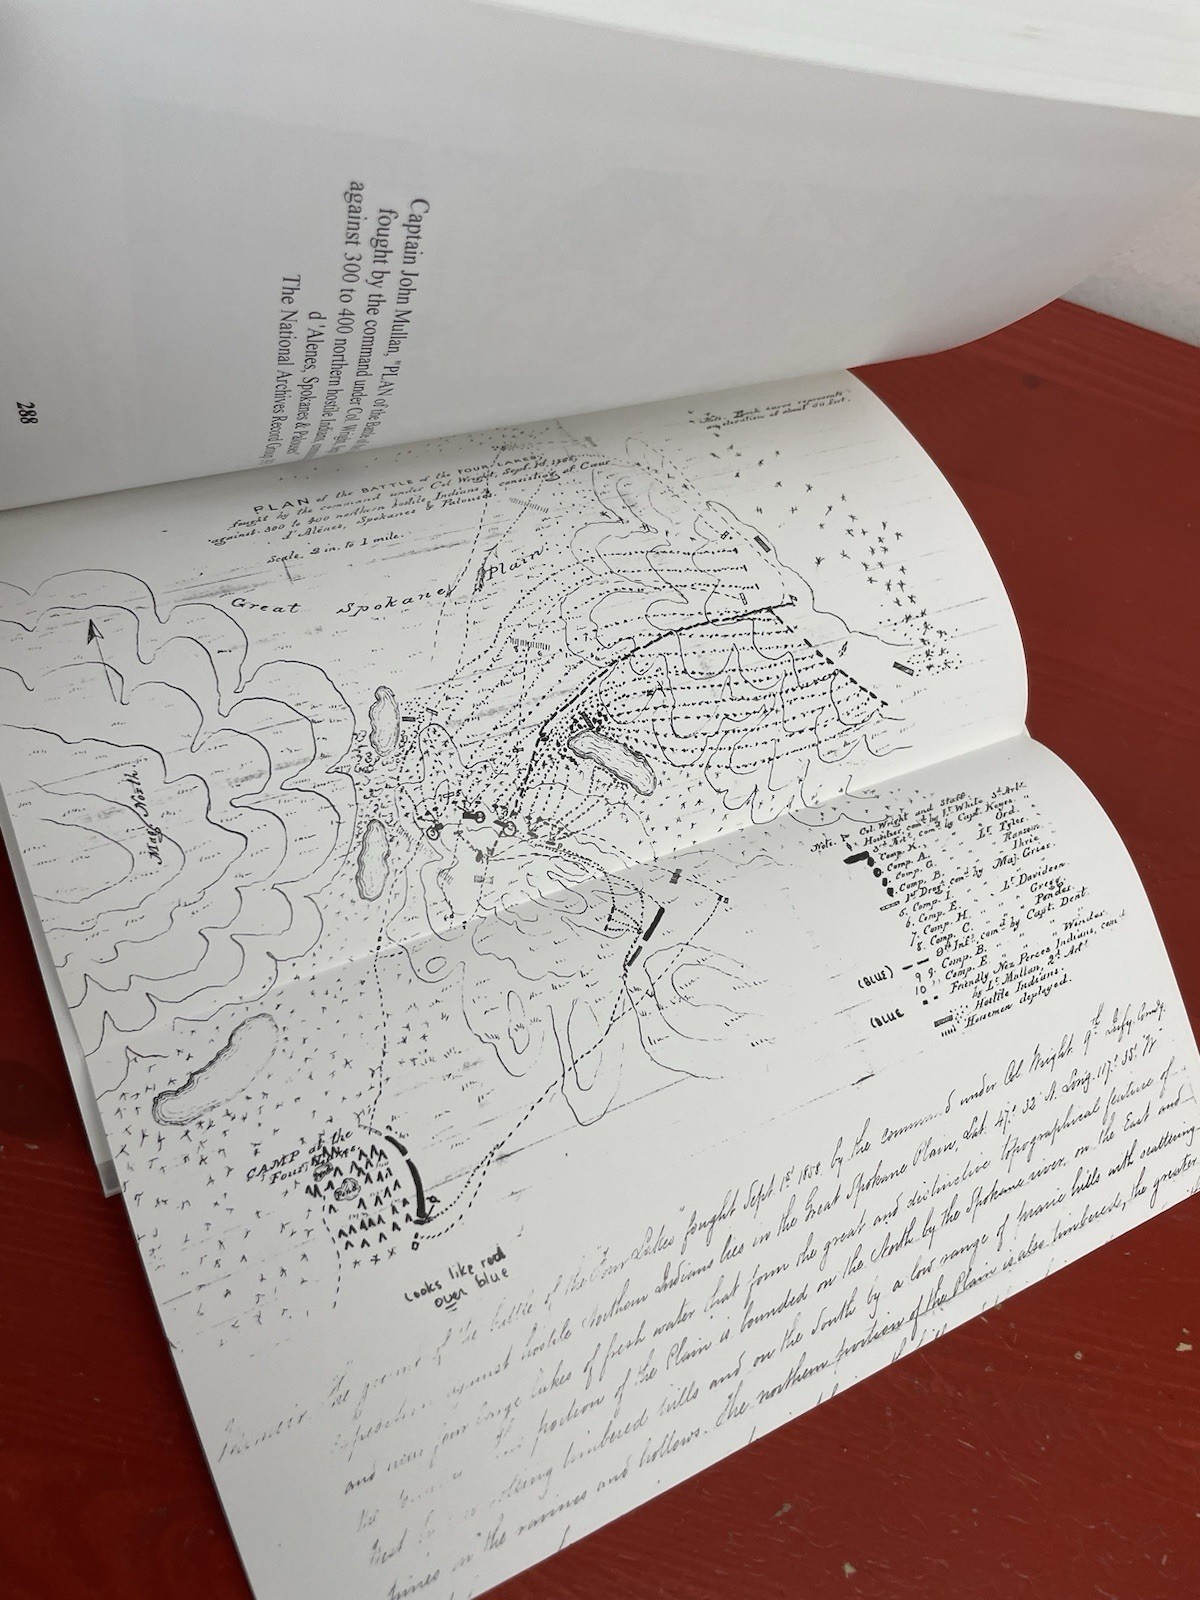 Captain John Mullan, "PLAN of the Battle of
fought by the command under Col. Wright,
against 300 to 400 northern hostile Indian
d'Alenes, Spokanes & Palouse
The National Archives Record Group
288
Note. Each curve represents
an elevation of about 50 feet.
PLAN of the BATTLE of the FOUR LAKES,
fought by the command under Col Wright, Sept. 1st 1858,
against 300 to 400 northern hostile Indians consisting of Cour
d'Alènes, Spokanes & Palouses.
Scale, 2 in. to 1 mile.
Great Spokane Plain
CAMP at the
Four Lakes
Pond
Pond
Looks like road
over blue
Note.
Col. Wright and Staff
Howitzer, com'd by Lt White 3d Art'y
3d Art. com'd by Capt. Keyes.
Comp. K. " " Ord.
Comp. A. " " Lt Tyler.
Comp. G. " " Ransom
Comp. B. " " Ihrie
1st Drag. com'd by Maj. Grier.
5. Comp. I.
6. Comp. E. " " Lt Davidson.
7. Comp. H. " " Gregg.
8. Comp. C. " " Pender.
9th Inf. com'd by Capt. Dent.
(BLUE) 9 Comp. B. " "
10 " Comp. E. " " Winder.
Friendly Nez Perces Indians, com'd
(BLUE by Lt Mullan, 2d Art'y
Hostile Indians.
Horsemen deployed.
Memoir The ground of the battle of the "Four Lakes" fought Sept. 1st 1858, by the command under Col Wright 9th Infy. Comdg.
Expedition against hostile Northern Indians lies in the Great Spokane Plain, Lat. 47° 32' N. Long. 117° 35' W
and near four large lakes of fresh water that form the great and distinctive topographical feature of
the portion of the Plain is bounded on the North by the Spokane river, on the East and
West by low rolling timbered hills and on the South by a low range of prairie hills with scattering
pines in the ravines and hollows. The northern portion of the Plain is also timbered, the greater